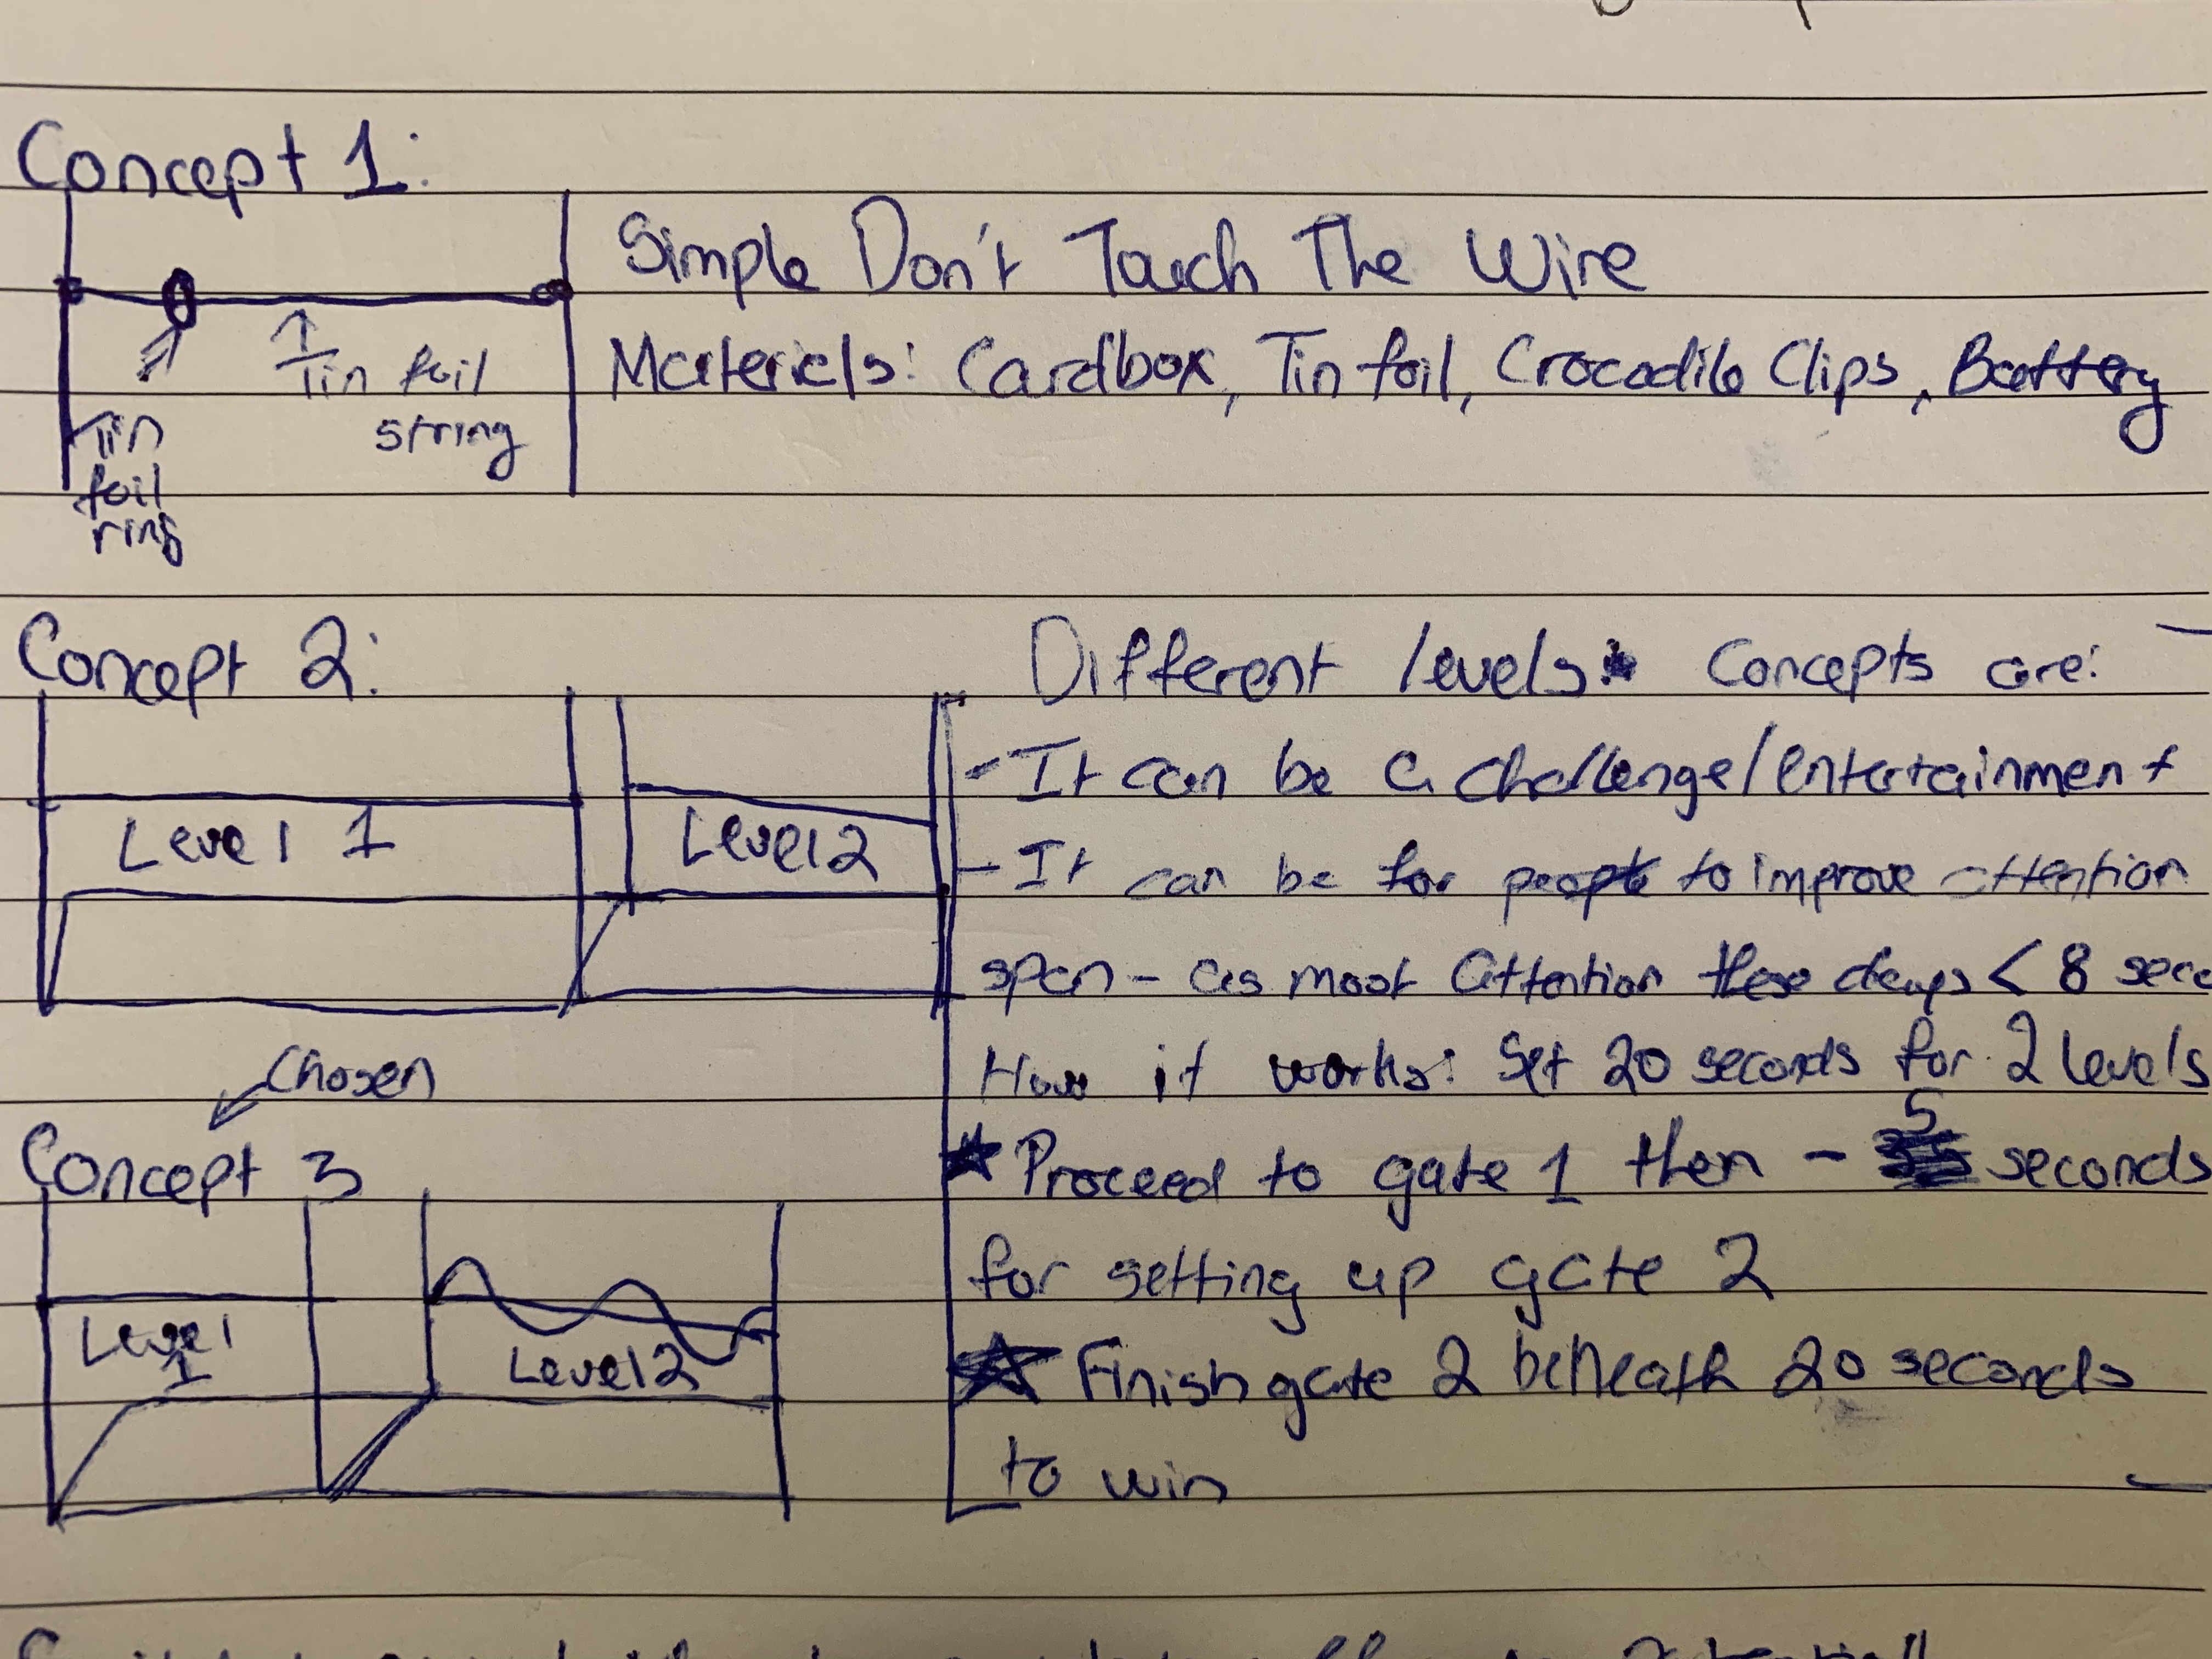 Concept 1:
Simple Don't Touch The Wire
Materials: Cardbox, Tin foil, Crocodile Clips, Battery
Tin foil
string
Tin
foil
ring
Concept 2:
Level 1
Level 2
Different levels Concepts are:
- It can be a challenge/entertainment
- It can be for people to improve attention
span - as most attention these days < 8 sec
How it works: Set 20 seconds for 2 levels
Proceed to gate 1 then - 5 seconds
for setting up gate 2
Finish gate 2 beneath 20 seconds
to win
Chosen
Concept 3
Level
1
Level 2